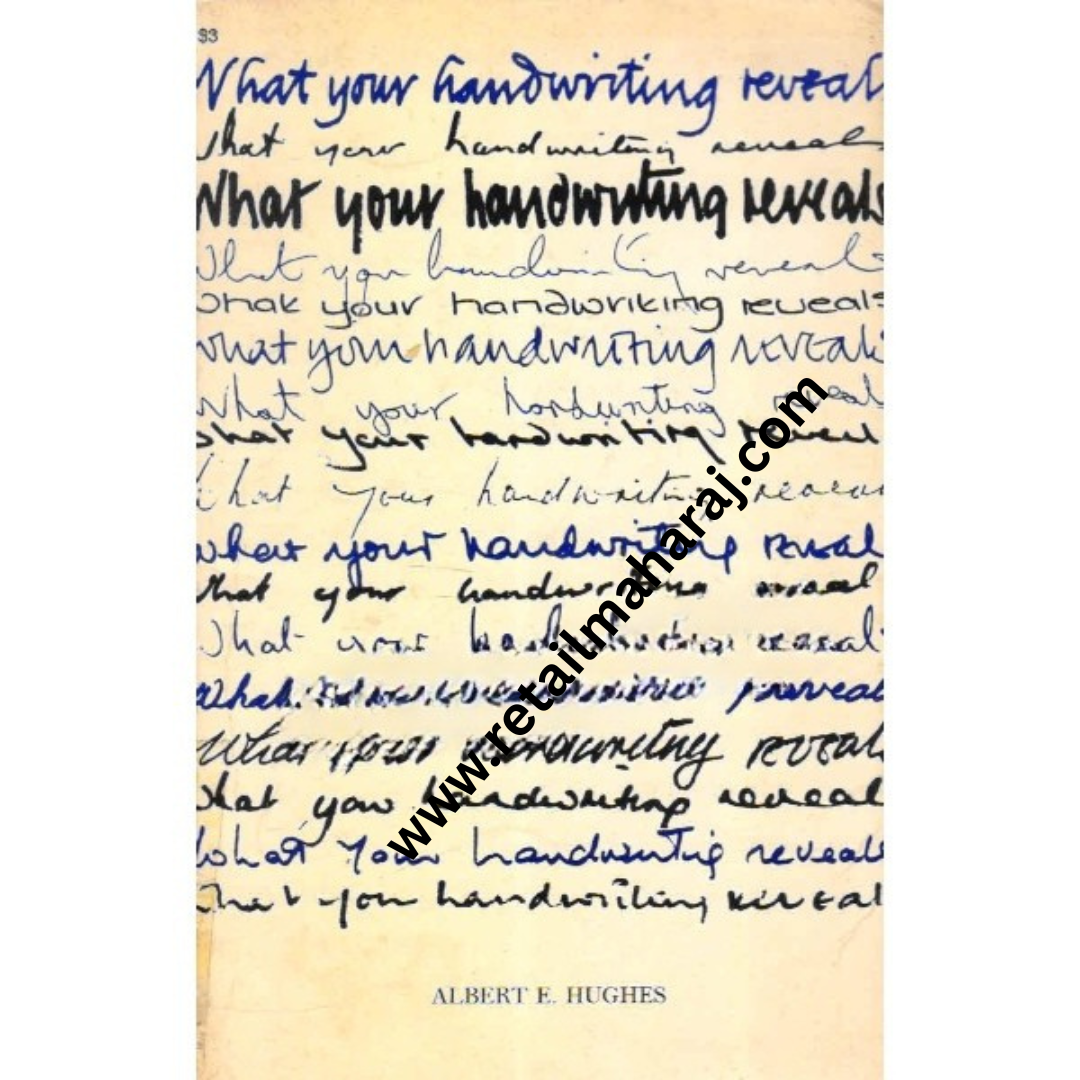 What your handwriting reveal
What your handwriting reveals
What your handwriting reveals
What your handwriting reveals
What your handwriting reveals
what your handwriting reveals
What your handwriting reveal
What your handwriting reveal
What your handwriting reveal
what your handwriting reveal
What your handwriting reveal
What your handwriting reveals
What reveal
What your handwriting reveal
What your handwriting reveal
What your handwriting reveals
What your handwriting reveal
www.retailmaharaj.com
ALBERT E. HUGHES